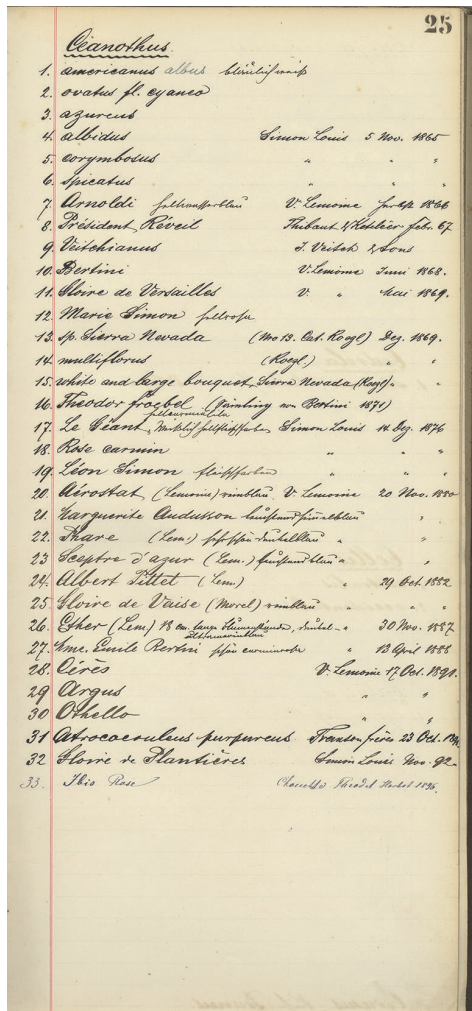 25
Ceanothus.
1. americanus albus bläulichweiß
2. ovatus fl. cyaneo
3. azureus
4. albidus Simon Louis 5 Nov. 1865
5. corymbosus " " "
6. spicatus " "
7. Arnoldi V. Lemoine 1866
8. Président Réveil Thibaut & Keteleer febr. 67
9. Veitchianus J. Veitch & sons
10. Bertini V. Lemoine Juni 1868.
11. Gloire de Versailles V. " Mai 1869.
12. Marie Simon hellrosa
13. sp. Sierra Nevada (No 13. Cat. Roezl) Dez. 1869.
14. multiflorus (Roezl.) " "
15. white and large bouquet Sierra Nevada (Roezl) " "
16. Theodor froebel (Sämling von Bertini 1871)
17. Le Géant, Simon Louis 14 Dez. 1876
18. Rose carmin " " "
19. Léon Simon fleischfarben " " "
20. Aérostat (Lemoine) reinblau V. Lemoine 20 Nov. 1880
21. Marguerite Audusson "
22. Phare (Lem.) dunkelblau " "
23 Sceptre d'azur (Lem.) " "
24. Albert Pittet (Lem) " 29 Oct. 1882
25. Gloire de Vaise (Morel) reinblau " " "
26. Esther (Lem) 18 cm. lange dunkel- " 30 Nov. 1887
27. Mme. Emile Bertini schön carminrosa " 13 April 1888
28 Cérès V. Lemoine 17 Oct. 1891.
29 Argus " "
30 Othello " "
31 Atrocoeruleus purpureus Transon frères 23 Oct.
32 Gloire de Plantières Simon Louis Nov. 92
33. Ibis Rose Herbst 1895.